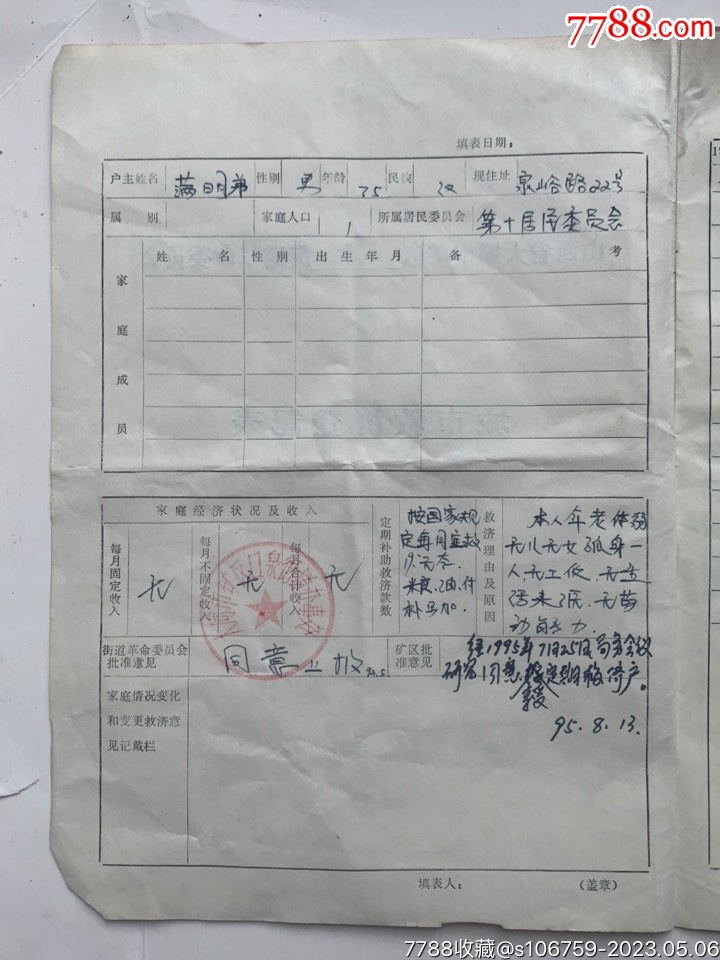 7788.com
填表日期：
户主姓名 满明弟 性别 男 年龄 75 民族 汉 现住址 泉山谷路22号
属别 家庭人口 1 所属居民委员会 第十居民委员会
姓名 性别 出生年月 备考
家庭成员
家庭经济状况及收入
每月固定收入 无
每月不固定收入 无
每月合计收入 无
定期补助救济款数
按国家规
定每月
米粮、油、付
补另加。
救济理由及原因
本人年老体弱
无儿无女孤身一
人,无工作、无生
活来源、无劳
动能力.
街道革命委员会批准意见 同意上报
矿区批准意见
经1995年7月25日局务会议
研究同意 定期 济户。
95.8.13.
家庭情况变化
和变更救济意
见记戴栏
填表人： （盖章）
7788收藏@s106759-2023.05.06